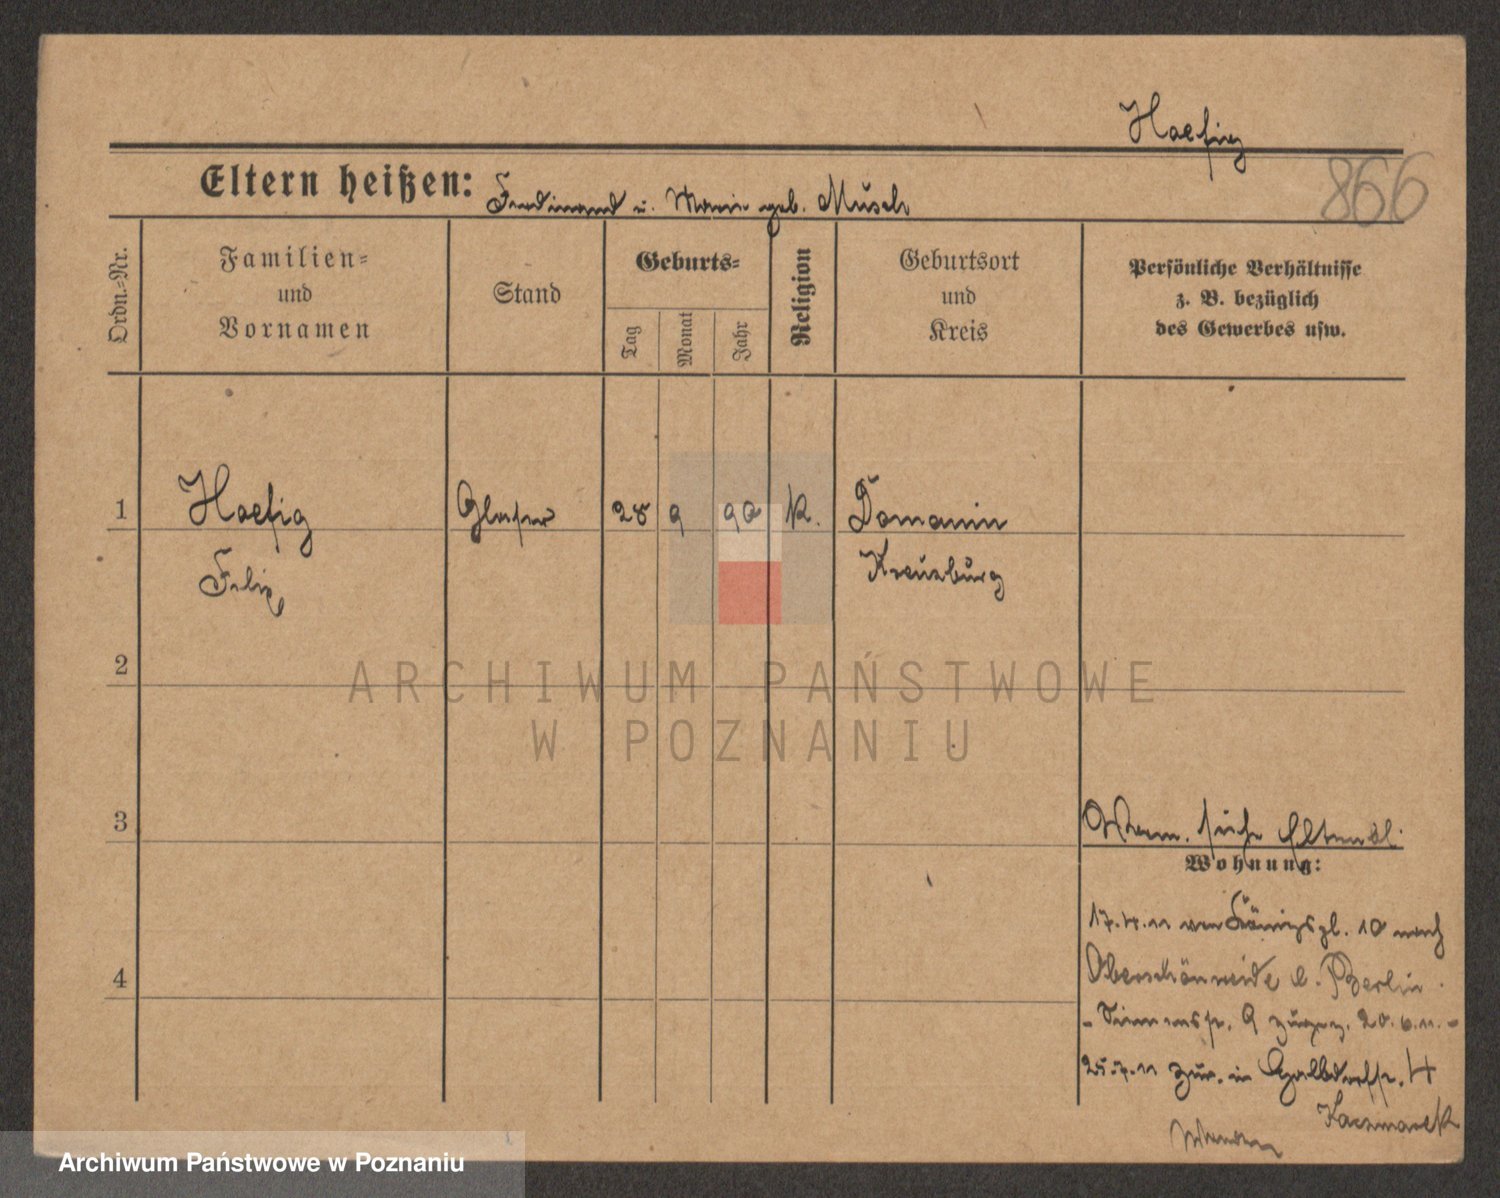 Haefig
866
Eltern heißen: Ferdinand u. Marie geb. Musch
Ordn.-Nr.
Familien-
und
Vornamen
Stand
Geburts-
Tag
Monat
Jahr
Religion
Geburtsort
und
Kreis
Persönliche Verhältnisse
z. B. bezüglich
des Gewerbes usw.
1
Haefig
Felix
Glaser
28 9 90 K.
Domanin
Kreuzburg
2
3
4
siehe
Wohnung:
17.4.11 von Königspl. 10 nach
Oberschöneweide b. Berlin.
- Siemensstr. 9 zugez. 20.6.11. -
25.7.11 zur. in 4
Kaczmarek
ARCHIWUM PAŃSTWOWE
W POZNANIU
Archiwum Państwowe w Poznaniu